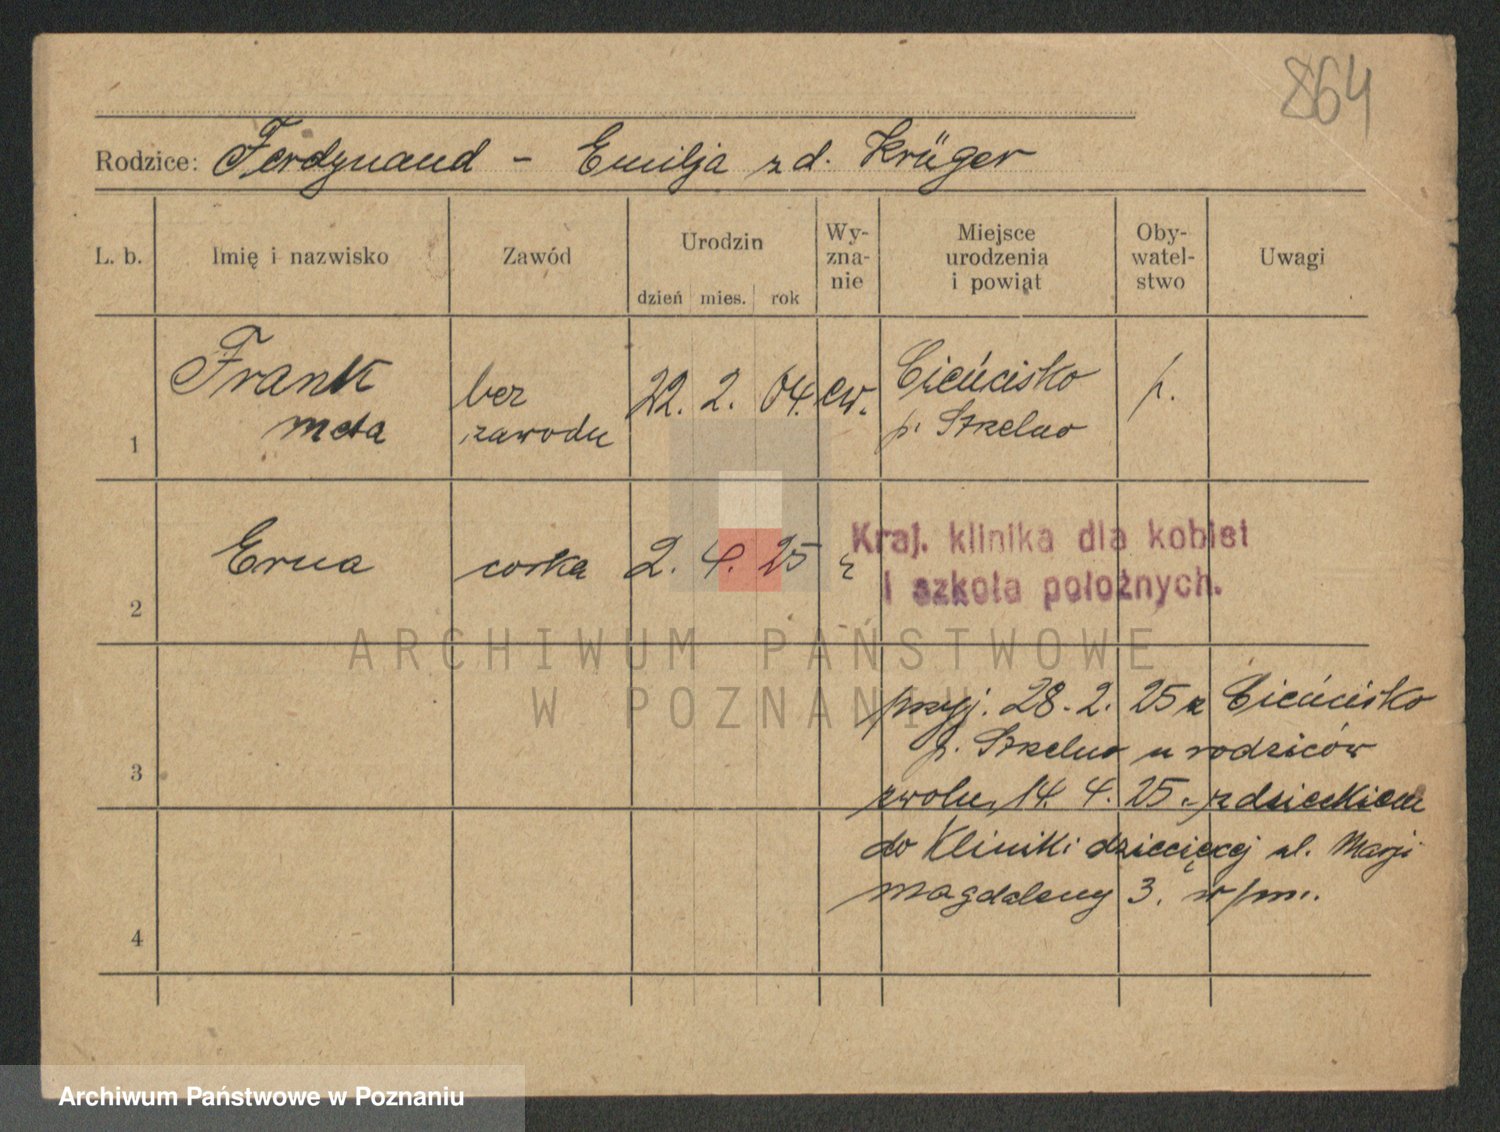 864
Rodzice: Ferdynand - Emilja z d. Krüger
L. b. Imię i nazwisko Zawód Urodzin Wy-zna-nie Miejsce urodzenia i powiat Oby-watel-stwo Uwagi
dzień mies. rok
Frank bez 22. 2. 04. ew. Cieńcisko p.
1 Meta zawodu p. Strelno
Erna corka 2. 4. 25 Kraj. klinika dla kobiet
2 i szkoła położnych.
ARCHIWUM PAŃSTWOWE
W POZNANIU
przyj. 28. 2. 25 z Cieńcisko
p. Strelno u rodziców
3
zwoln. 14. 4. 25. z dzieckiem
do Kliniki dziecięcej ul. Marji
Magdaleny 3. w
4
Archiwum Państwowe w Poznaniu